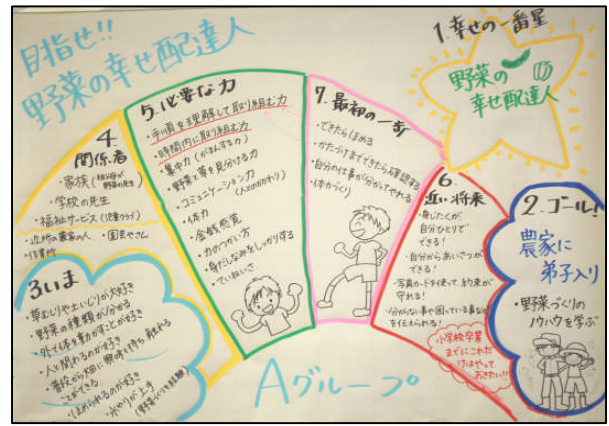 目指せ!!
野菜の幸せ配達人
1.幸せの一番星
野菜の
幸せ配達人
2.ゴール!
農家に
弟子入り
・野菜づくりの
ノウハウを学ぶ
3.いま
・草むしりや土いじりが大好き
・野菜の種類が分かる
・外で体を動かすことが好き
・人と関わるのが好き
・普段から畑に興味を持ち、触れる
ことができる
・ほめられるのが好き
・水やりが上手
4.
関係者
・家族
・学校の先生
・福祉サービス(児童クラブ)
・近所の農家の人 ・園芸やさん
・作業所
5.必要な力
・手順を理解して取り組む力
・時間内に取り組む力
・集中力(がまんする力)
・野菜と草を見分ける力
・コミュニケーション力
(人とのかかわり)
・体力
・金銭感覚
・力のつかい方
・身だしなみをしっかりする
・ていねいさ
7.最初の一歩
・できたらほめる
・かたづけまでできたら確認する
・自分の仕事が分かってやれる
・体力づくり
6.
近い将来
・身じたくが
自分ひとりで
できる!
・自分からあいさつが
できる!
・写真カードを使って、約束が
守れる!
・分からない事や困っている事など
を伝えられる!
小学校卒業
までにこれだ
けはやって
おきたい!!
Aグループ